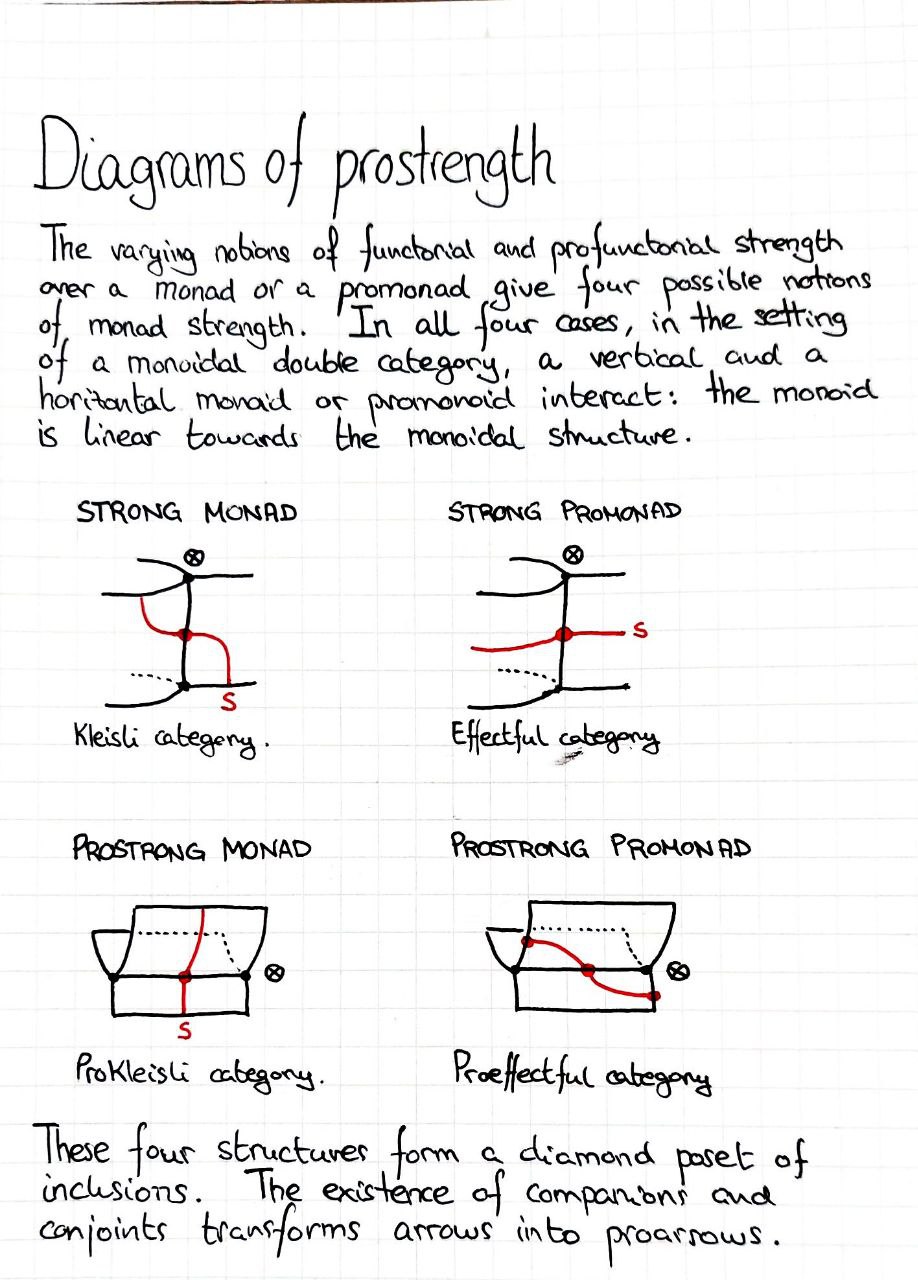 Diagrams of prostrength
The varying notions of functorial and profunctorial strength
over a monad or a promonad give four possible notions
of monad strength. In all four cases, in the setting
of a monoidal double category, a vertical and a
horizontal monoid or promonoid interact: the monoid
is linear towards the monoidal structure.
STRONG MONAD
STRONG PROMONAD
⊗
⊗
S
S
Kleisli category.
Effectful category
PROSTRONG MONAD
PROSTRONG PROMONAD
⊗
⊗
S
ProKleisli category.
Proeffectful category
These four structures form a diamond poset of
inclusions. The existence of companions and
conjoints transforms arrows into proarrows.